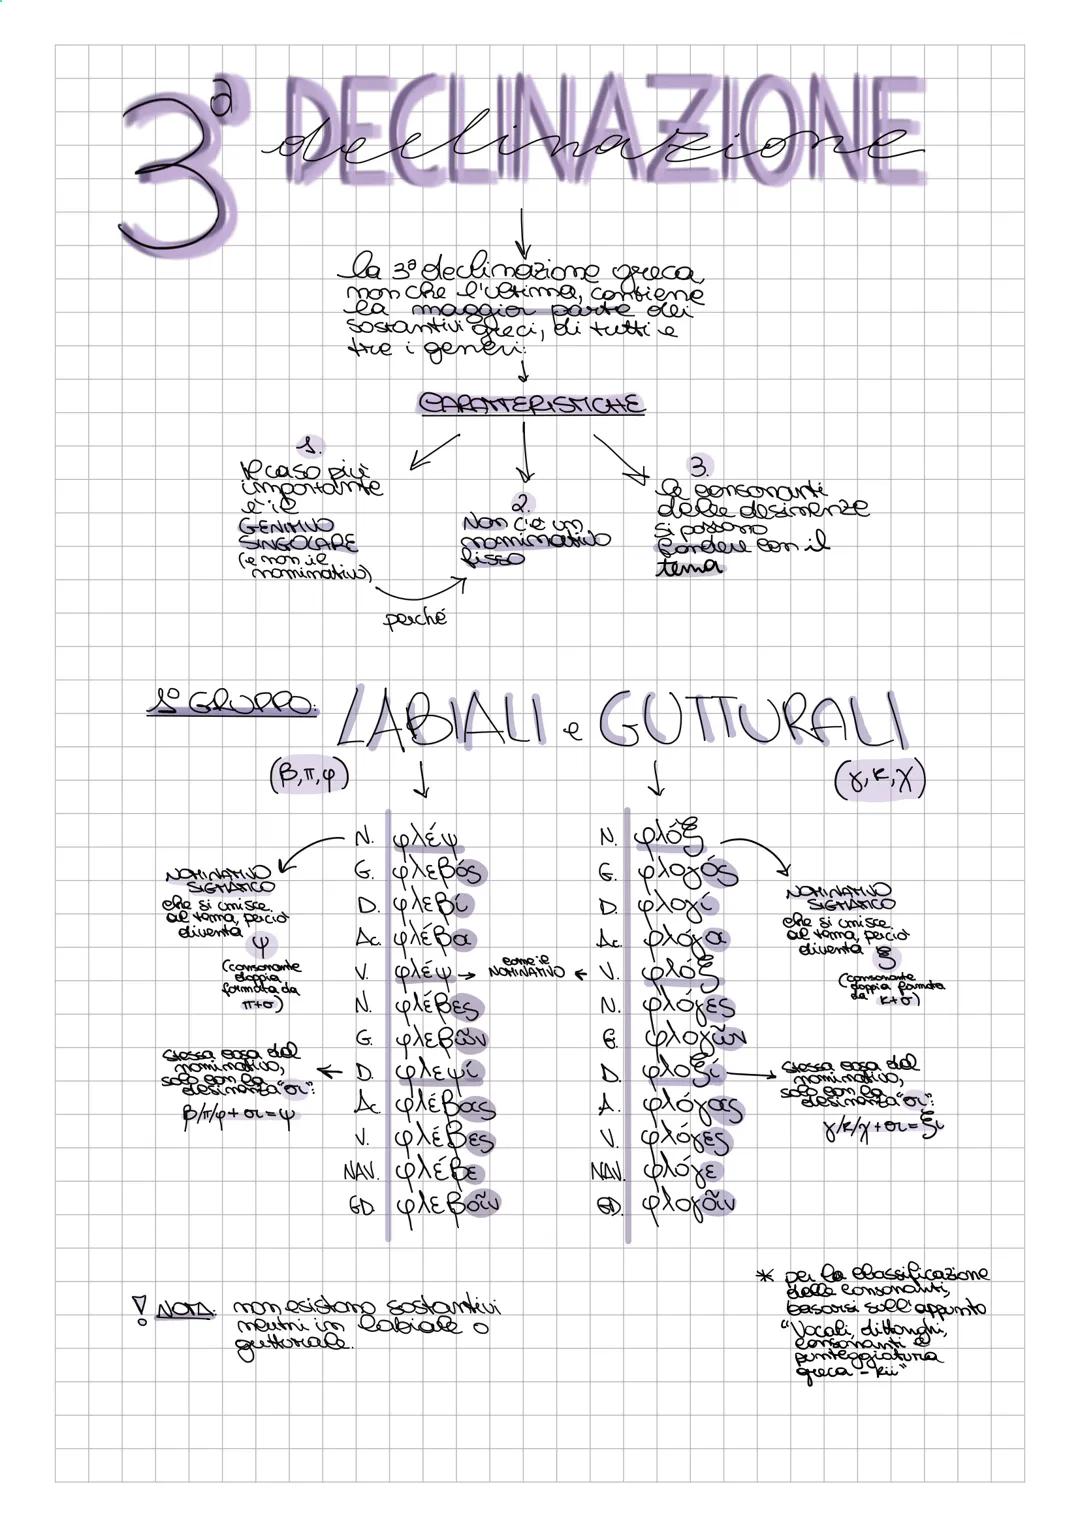 3ª DECLINAZIONE
declinazione
la 3ª declinazione greca,
non che l'ultima, contiene
la maggior parte dei
sostantivi greci, di tutti e
tre i generi.
CARATTERISTICHE
1.
Il caso più
importante
è il
GENITIVO
SINGOLARE
(e non il
nominativo)
perché
2.
Non c'è un
nominativo
fisso
3.
le consonanti
delle desinenze
si possono
fondere con il
tema
1° GRUPPO:
LABIALI e GUTTURALI
(β,π,φ)
(γ,κ,χ)
N. φλέψ
G. φλεβός
D. φλεβί
Ac. φλέβα
V. φλέψ
N. φλέβες
G. φλεβῶν
D. φλεψί
Ac φλέβας
V. φλέβες
NAV. φλέβε
GD φλεβοῖν
come il
NOMINATIVO
N. φλόξ
G. φλογός
D. φλογί
Ac. φλόγα
V. φλόξ
N. φλόγες
G. φλογῶν
D. φλοξί
A. φλόγας
V. φλόγες
NAV. φλόγε
GD. φλογοῖν
NOMINATIVO
SIGMATICO
che si unisce
al tema, perciò
diventa
ψ
(consonante
doppia
formata da
π+σ)
stessa cosa del
nominativo,
solo con la
desinenza "σι":
β/π/φ + σι = ψ
NOMINATIVO
SIGMATICO
che si unisce
al tema, perciò
diventa
ξ
(consonante
doppia formata
da κ+σ)
stessa cosa del
nominativo,
solo con la
desinenza "σι":
γ/κ/χ + σι = ξι
! NOTA: non esistono sostantivi
neutri in labiale o
gutturale.
* per la classificazione
delle consonanti,
basarsi sull'appunto
"Vocali, dittonghi,
consonanti e
punteggiatura
greca - kii"